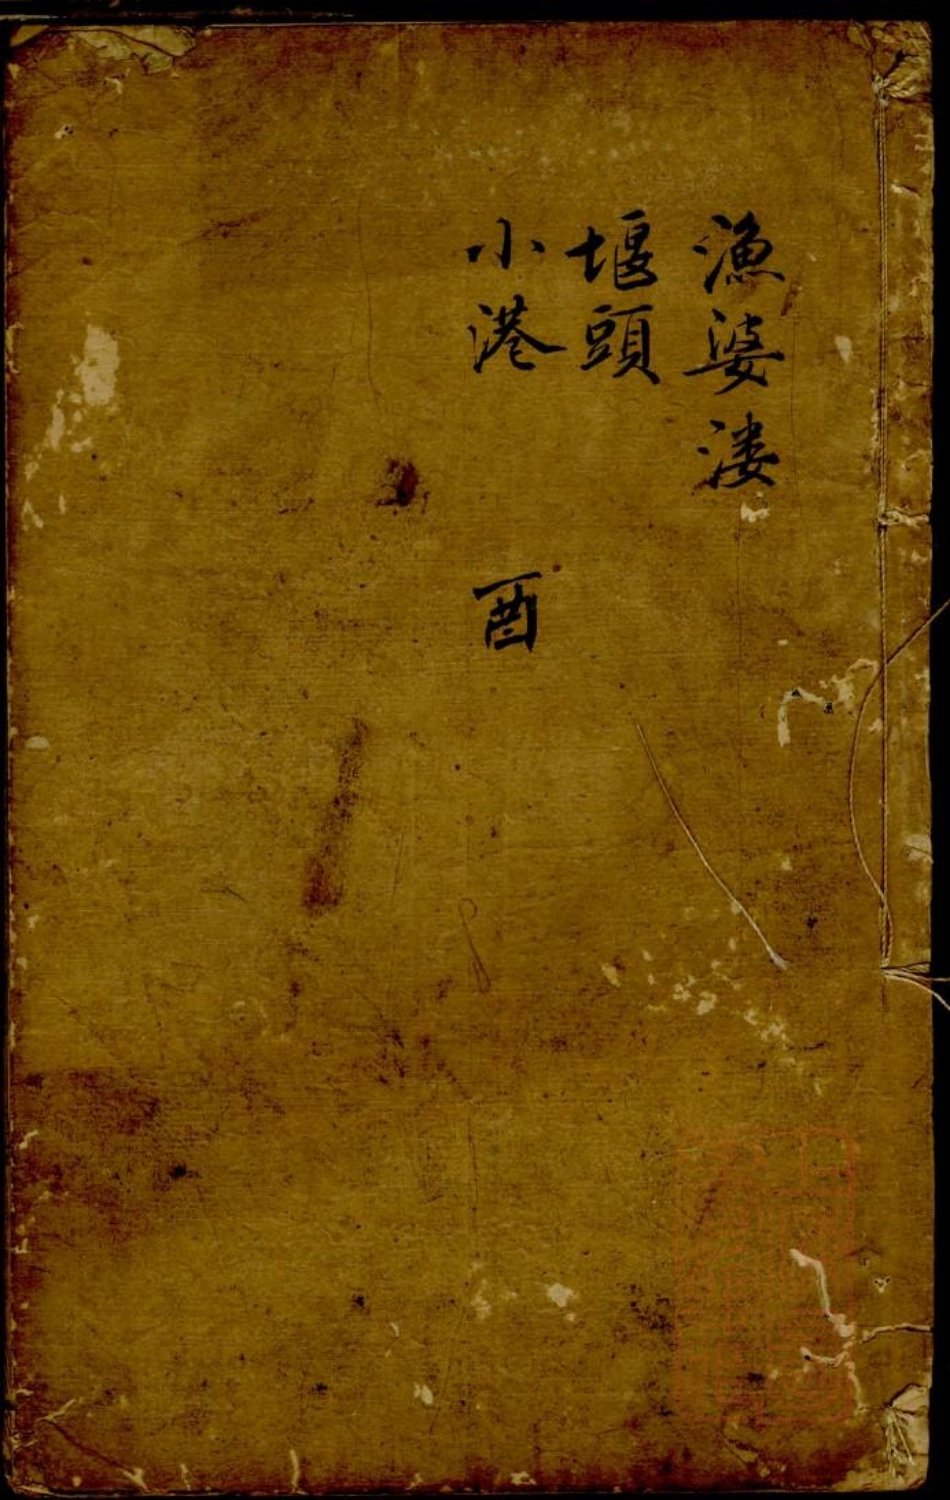 漁婆漊
堰頭
小港 酉